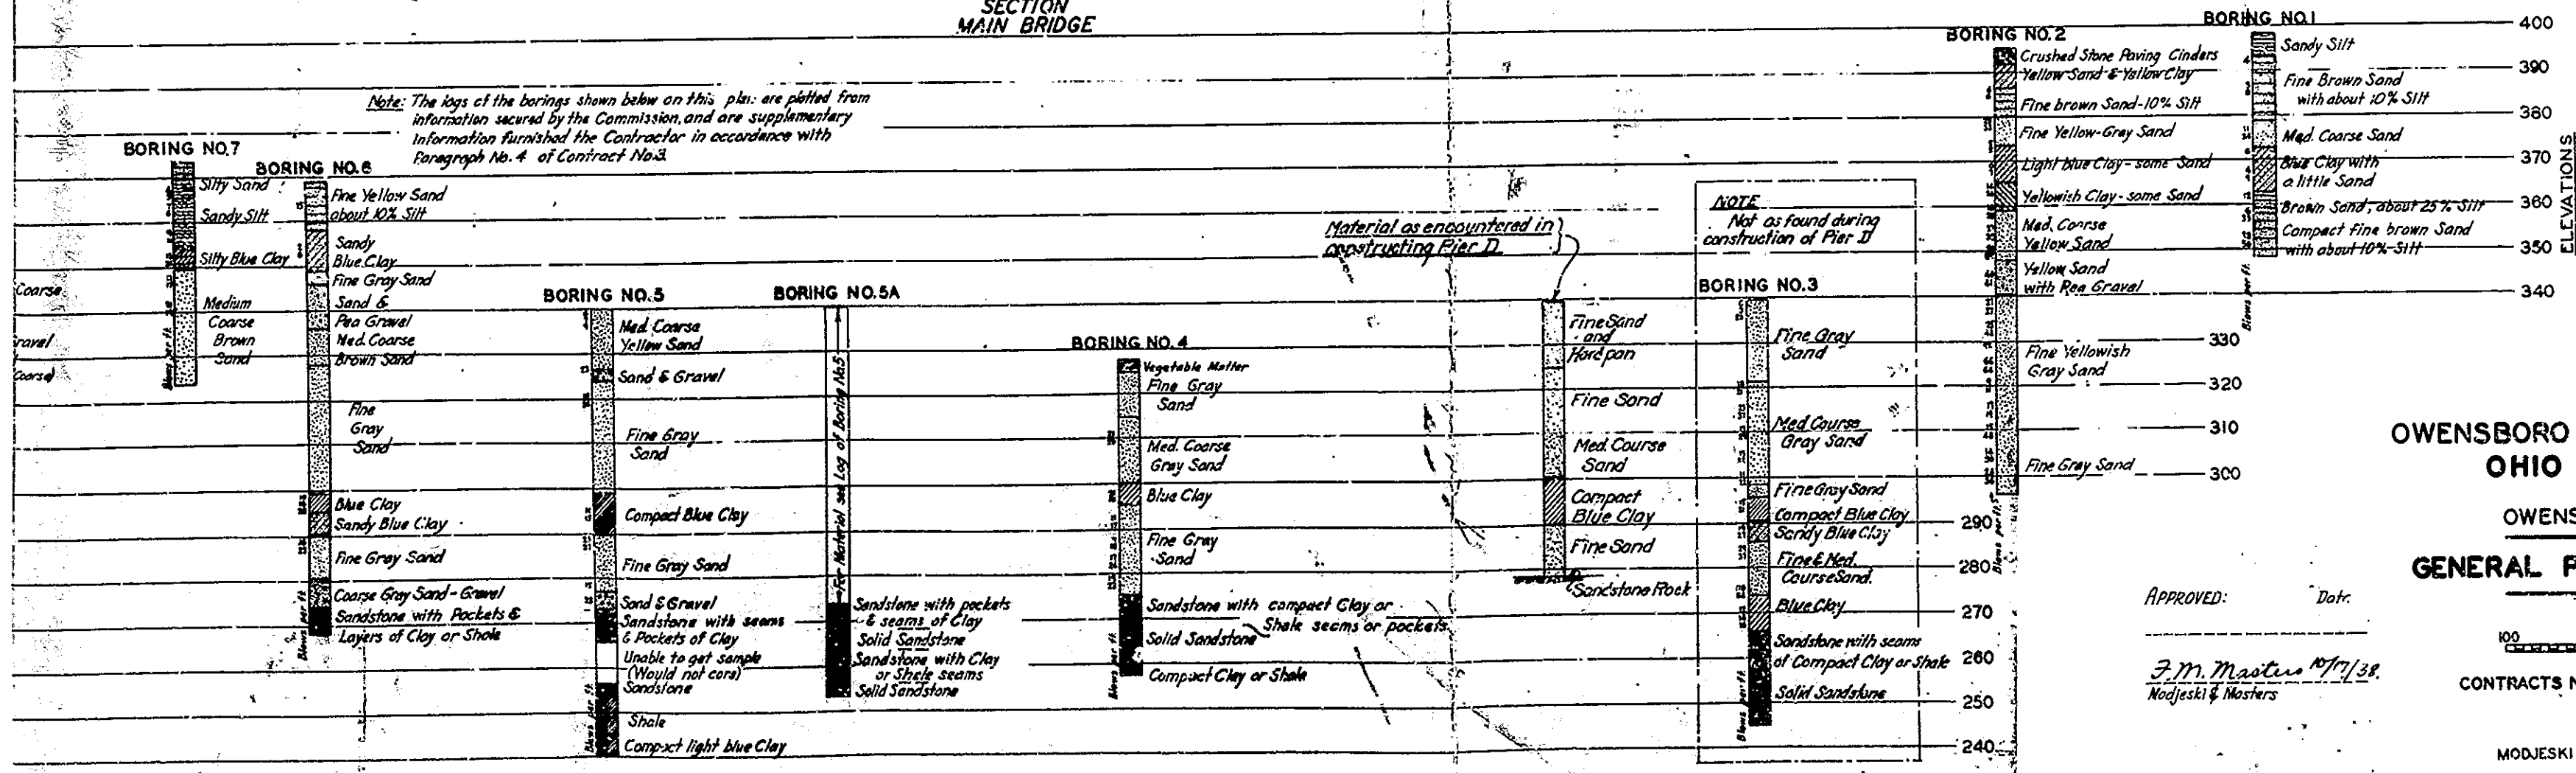 SECTION
MAIN BRIDGE
Note: The logs of the borings shown below on this plan are plotted from
information secured by the Commission, and are supplementary
Information furnished the Contractor in accordance with
Paragraph No. 4 of Contract No.3.
BORING NO.7
Silty Sand
Sandy Silt
Silty Blue Clay
Medium
Coarse
Brown
Sand
Blows per ft.
Coarse
ravel
Coarse)
BORING NO.6
Fine Yellow Sand
about 10% Silt
Sandy
Blue Clay
Fine Gray Sand
Sand &
Pea Gravel
Med. Coarse
Brown Sand
Fine
Gray
Sand
Blue Clay
Sandy Blue Clay
Fine Gray Sand
Coarse Gray Sand-Gravel
Sandstone with Pockets &
Layers of Clay or Shale
Blows per ft.
BORING NO.5
Med. Coarse
Yellow Sand
Sand & Gravel
Fine Gray
Sand
Compact Blue Clay
Fine Gray Sand
Sand & Gravel
Sandstone with seams
& Pockets of Clay
Unable to get sample
(Would not core)
Sandstone
Shale
Compact light blue Clay
Blows per ft.
BORING NO.5A
For Material see Log of Boring No.5
Sandstone with pockets
& seams of Clay
Solid Sandstone
Sandstone with Clay
or Shale seams
Solid Sandstone
BORING NO.4
Vegetable Matter
Fine Gray
Sand
Med. Coarse
Gray Sand
Blue Clay
Fine Gray
Sand
Sandstone with compact Clay or
Shale seams or pockets
Solid Sandstone
Compact Clay or Shale
Blows per ft.
Material as encountered in
constructing Pier D
Fine Sand
and
Hardpan
Fine Sand
Med. Course
Sand
Compact
Blue Clay
Fine Sand
Sandstone Rock
NOTE
Not as found during
construction of Pier D
BORING NO.3
Fine Gray
Sand
Med. Course
Gray Sand
Fine Gray Sand
Compact Blue Clay
Sandy Blue Clay
Fine & Med.
Course Sand.
Blue Clay
Sandstone with seams
of Compact Clay or Shale
Solid Sandstone
Blows per ft.
BORING NO.2
Crushed Stone Paving Cinders
Yellow Sand & Yellow Clay
Fine brown Sand-10% Silt
Fine Yellow-Gray Sand
Light blue Clay-some Sand
Yellowish Clay-some Sand
Med. Coarse
Yellow Sand
Yellow Sand
with Pea Gravel
Fine Yellowish
Gray Sand
Fine Gray Sand
Blows per ft.
BORING NO.1
Sandy Silt
Fine Brown Sand
with about 10% Silt
Med. Coarse Sand
Blue Clay with
a little Sand
Brown Sand, about 25% Silt
Compact fine brown Sand
with about 10% Silt
Blows per ft.
400
390
380
370
360
350
340
330
320
310
300
290
280
270
260
250
240
ELEVATIONS
OWENSBORO
OHIO
OWENS
GENERAL P
APPROVED: Date.
100
F.M. Masters 10/17/38.
Modjeski & Masters
CONTRACTS N
MODJESKI